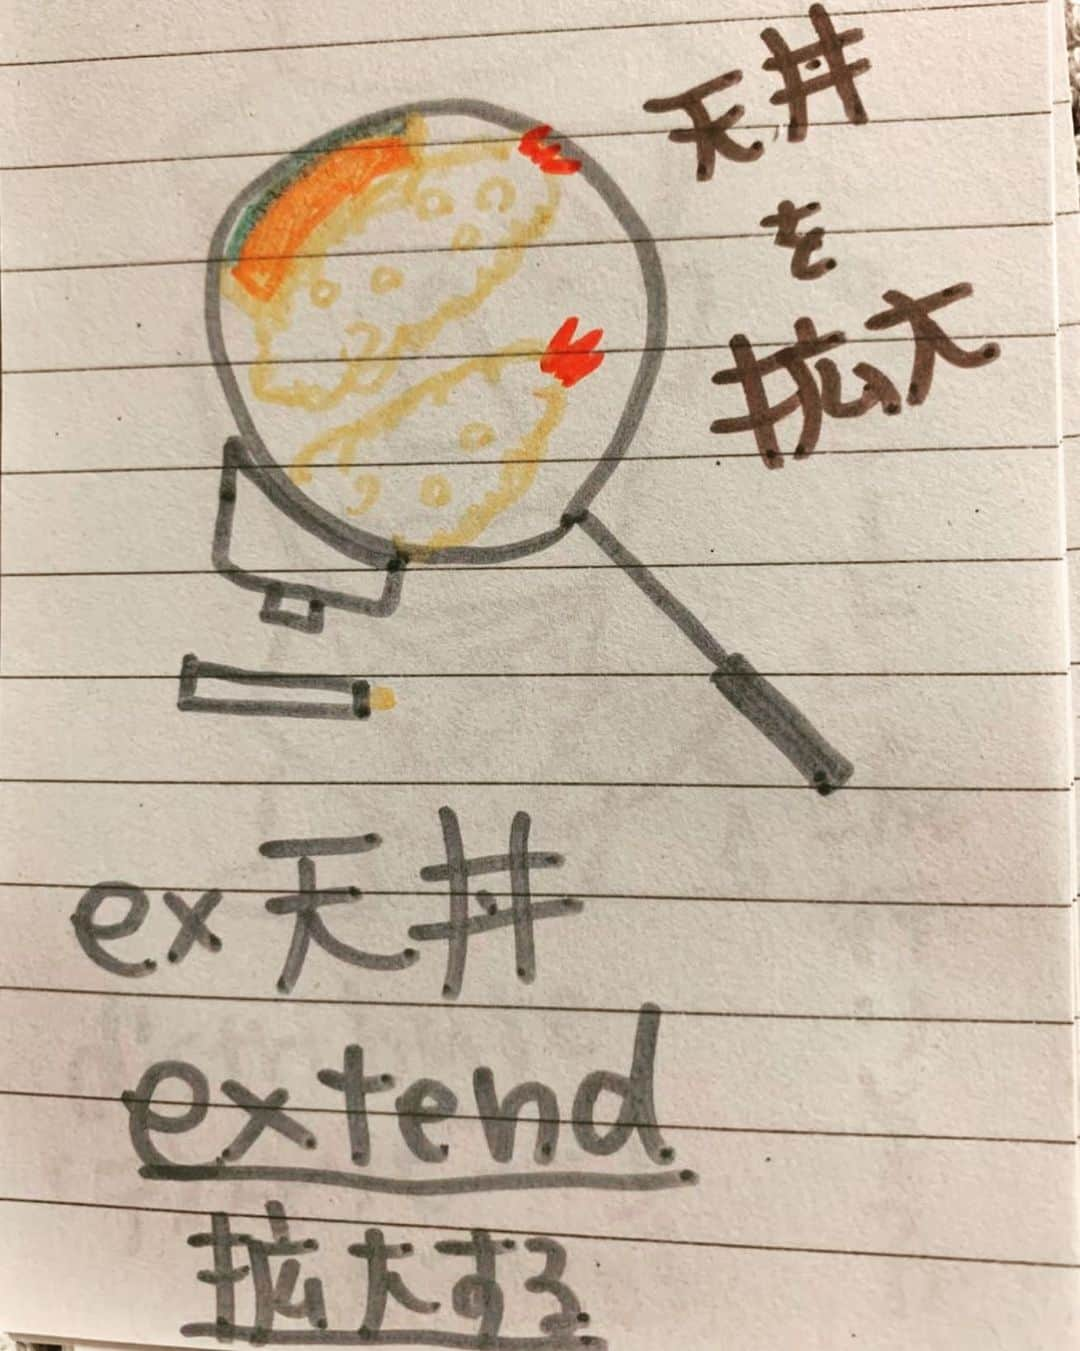 天丼
を
拡大
ex天丼
extend
拡大する